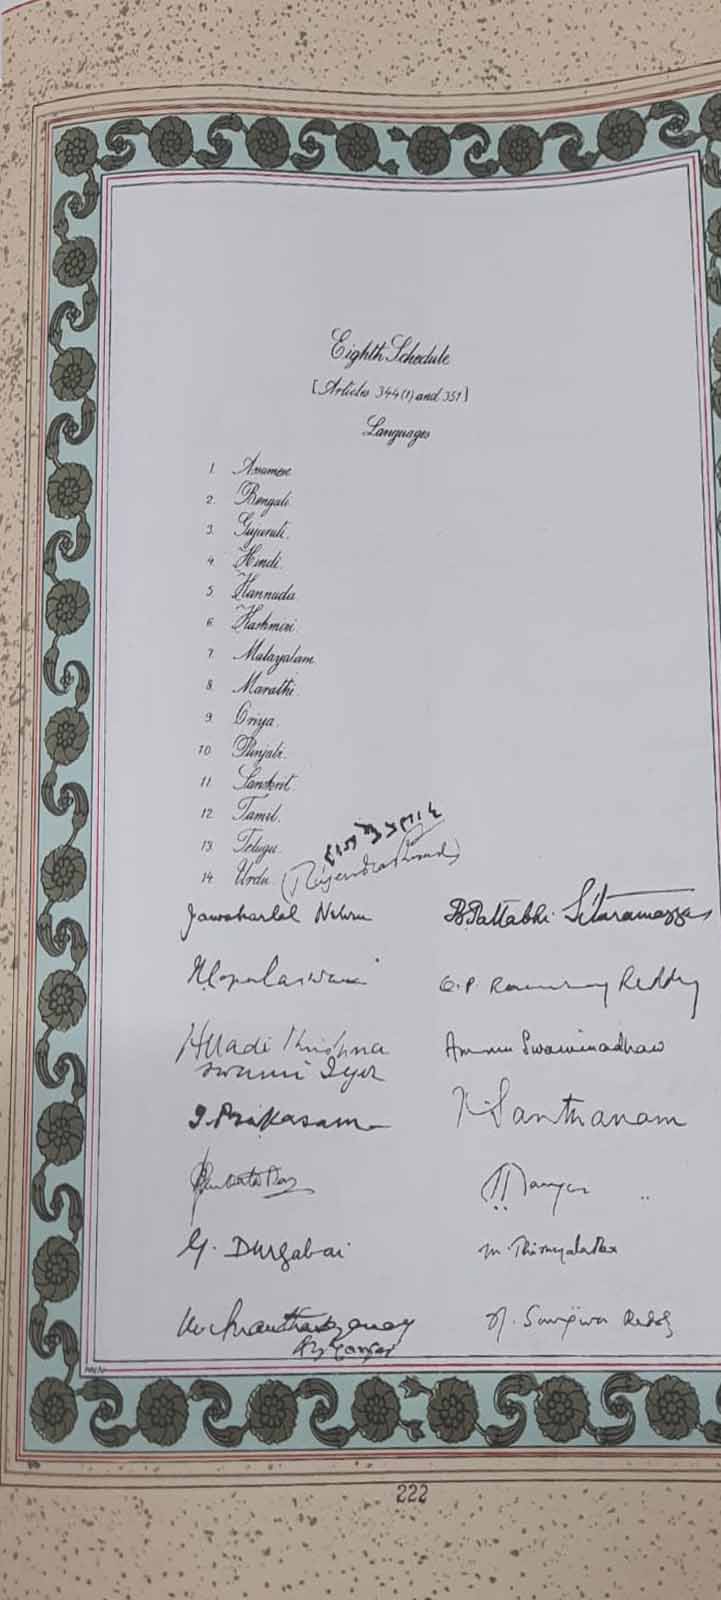 Eighth Schedule
[Articles 344(1) and 351]
Languages
1. Assamese.
2. Bengali.
3. Gujarati.
4. Hindi.
5. Kannada.
6. Kashmiri.
7. Malayalam.
8. Marathi.
9. Oriya.
10. Punjabi.
11. Sanskrit.
12. Tamil.
13. Telugu.
14. Urdu.
(Rajendra Prasad)
Jawaharlal Nehru B. Pattabhi Sitaramayya
N Gopalaswami O.P. Ramaswamy Reddy
Alladi Krishna Ammu Swaminadhan
swami Iyer
T. Prakasam K. Santhanam
G. Durgabai M. Thirumala Rao
N. Sanjiva Reddy
222